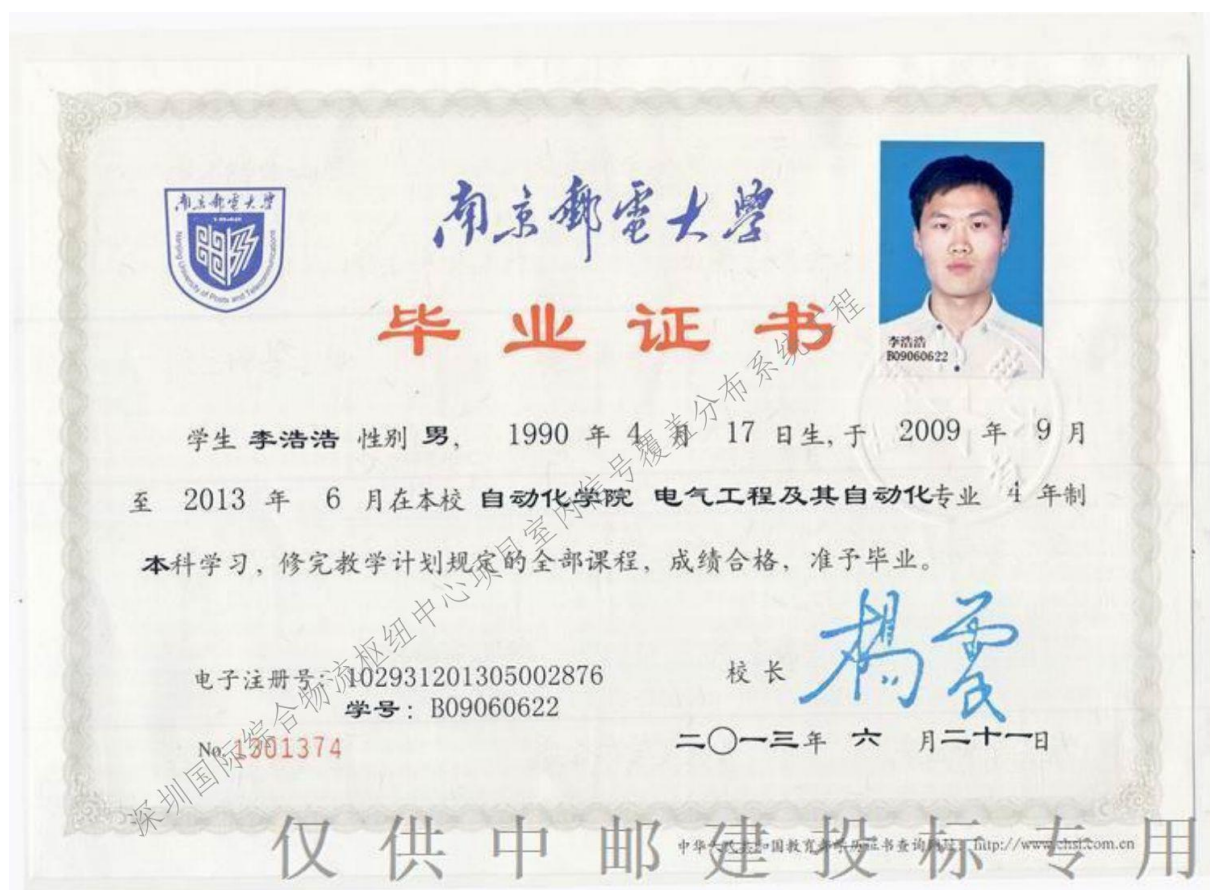 南京郵電大學
Nanjing University of Posts and Telecommunications
南京郵電大學
毕业证书
李浩浩
B09060622
学生 李浩浩 性别 男， 1990 年 4 月 17 日生，于 2009 年 9 月
至 2013 年 6 月在本校 自动化学院 电气工程及其自动化专业 4 年制
本科学习，修完教学计划规定的全部课程，成绩合格，准予毕业。
电子注册号：102931201305002876
学号：B09060622
No. 1301374
校长 楊震
二〇一三年 六 月二十一日
深圳国际综合物流枢纽中心项目室内信号覆盖分布系统工程
中华人民共和国教育部学历证书查询网址：http://www.chsi.com.cn
仅供中邮建投标专用